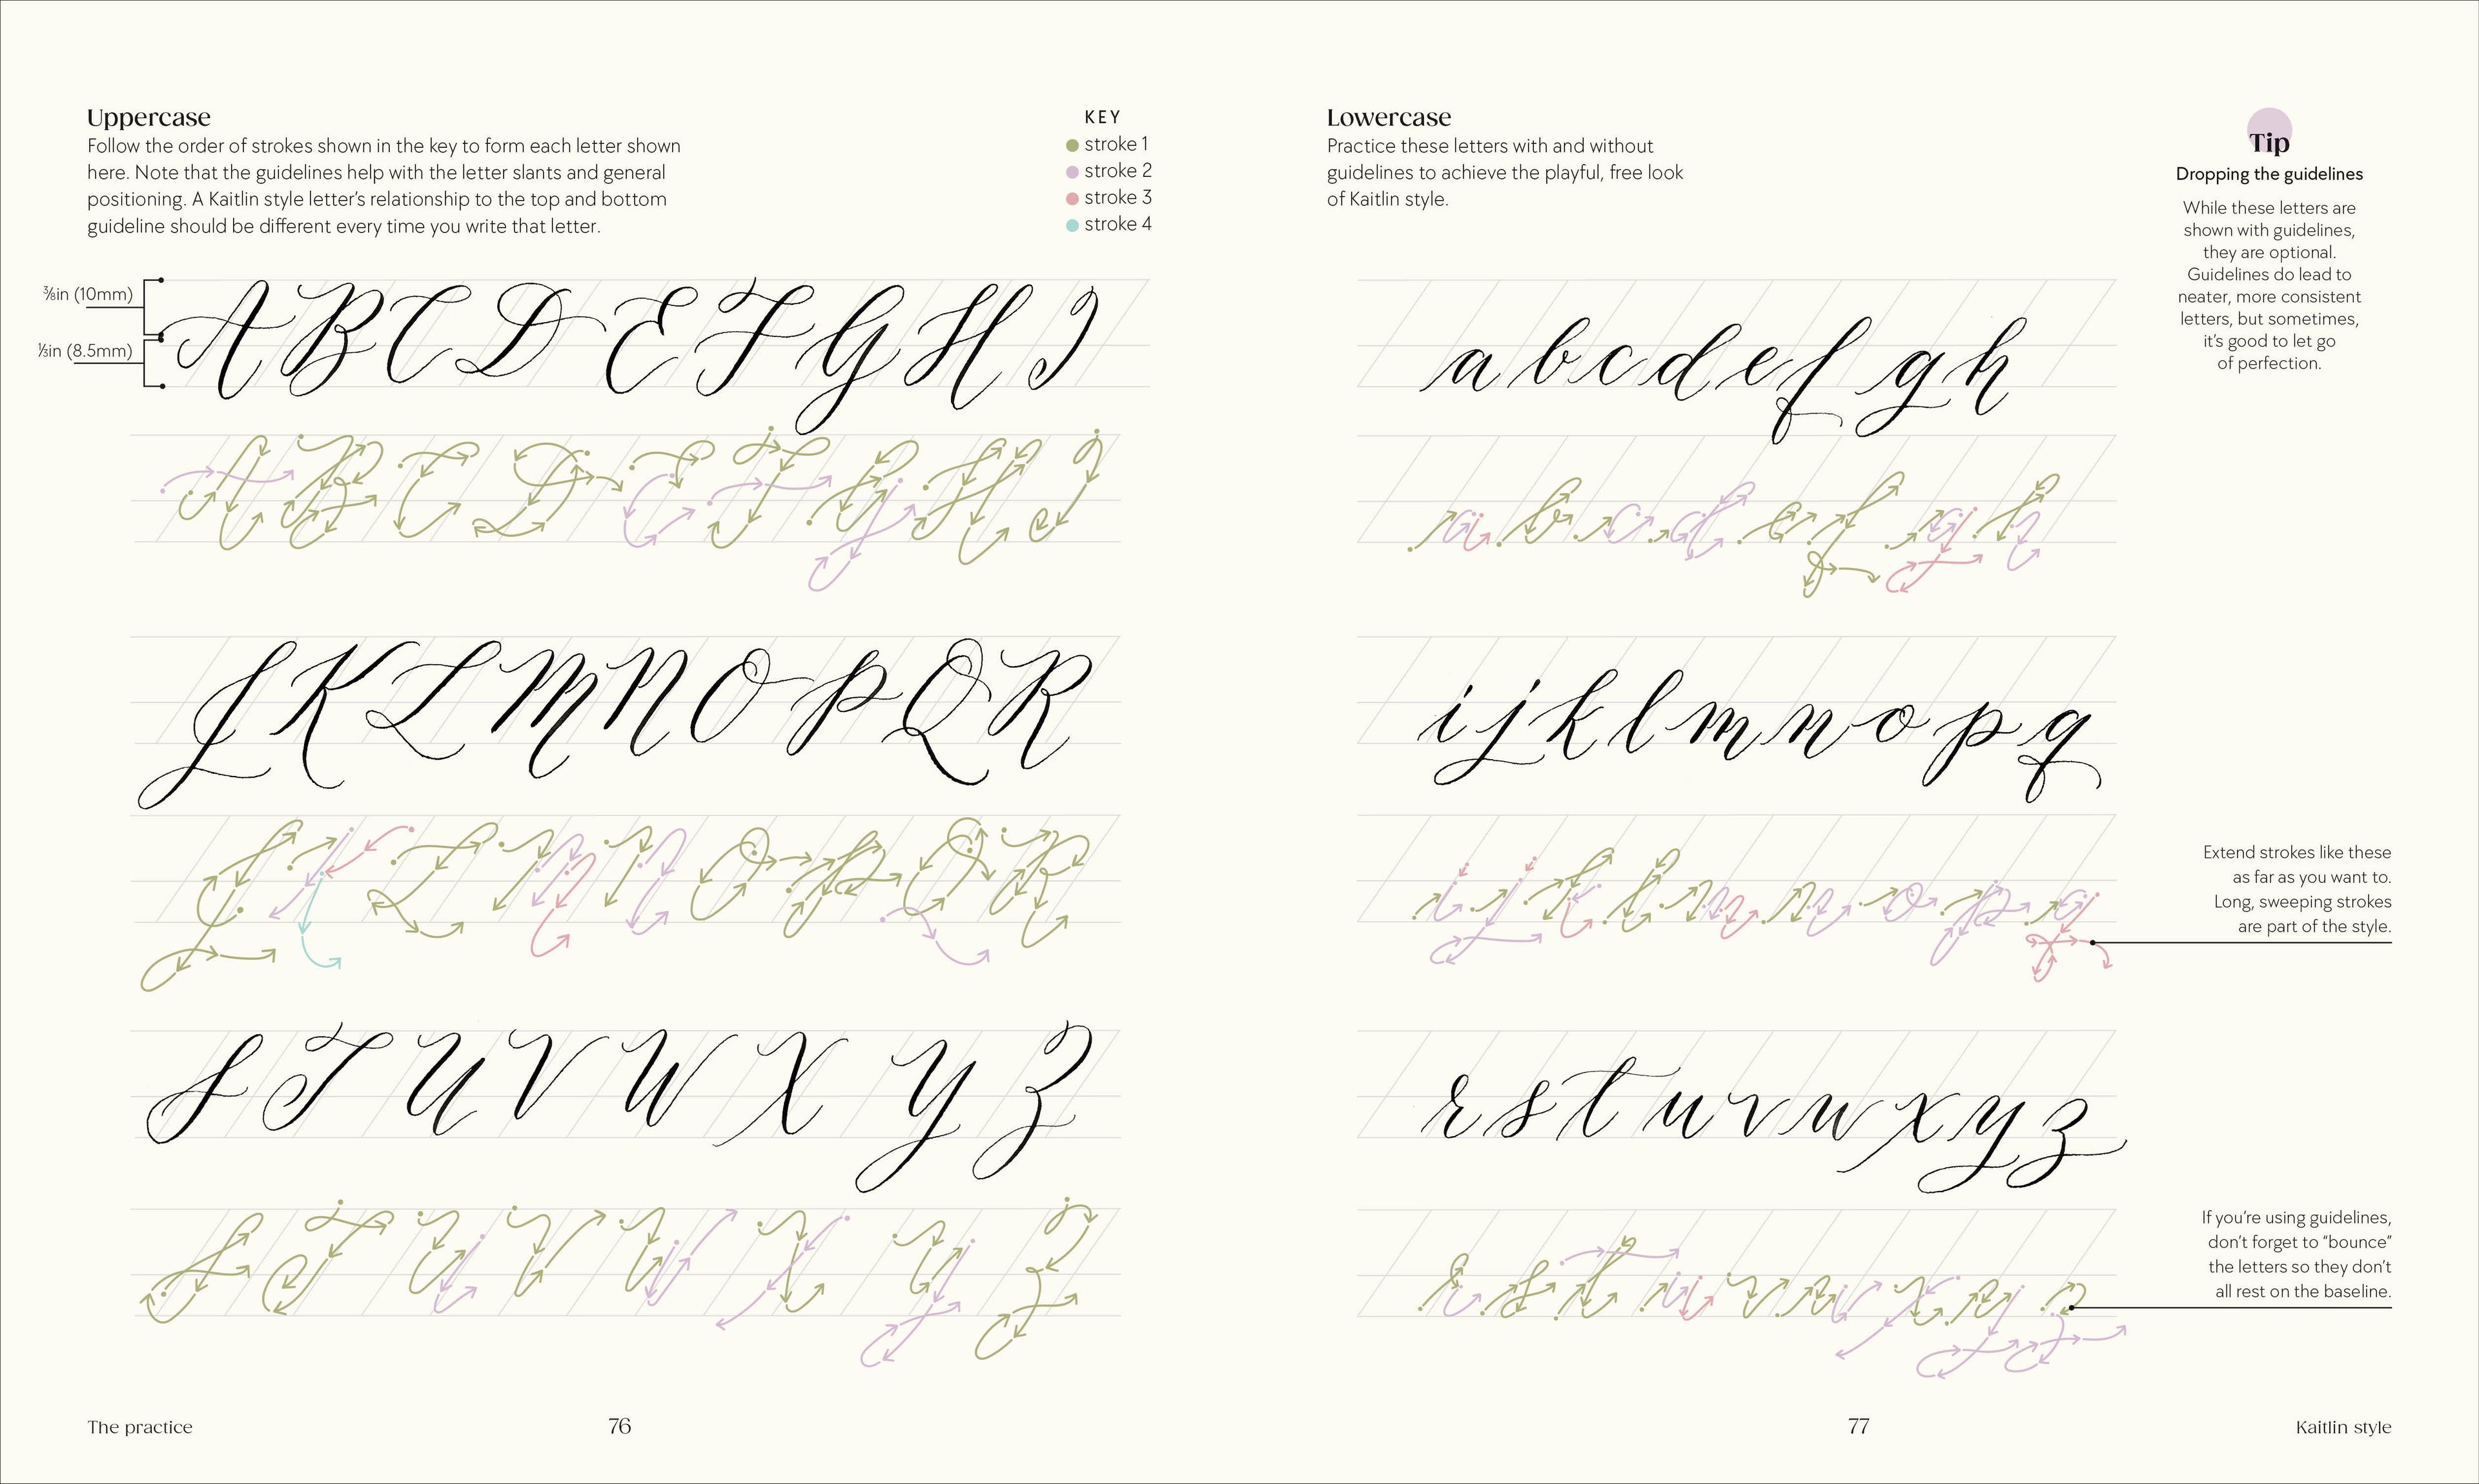 Uppercase
Follow the order of strokes shown in the key to form each letter shown
here. Note that the guidelines help with the letter slants and general
positioning. A Kaitlin style letter's relationship to the top and bottom
guideline should be different every time you write that letter.
KEY
stroke 1
stroke 2
stroke 3
stroke 4
⅜in (10mm)
⅓in (8.5mm)
A B C D E F G H I
A B C D E F G H I
J K L M N O P Q R
J K L M N O P Q R
S T U V W X Y Z
S T U V W X Y Z
The practice
76
Lowercase
Practice these letters with and without
guidelines to achieve the playful, free look
of Kaitlin style.
Tip
Dropping the guidelines
While these letters are
shown with guidelines,
they are optional.
Guidelines do lead to
neater, more consistent
letters, but sometimes,
it's good to let go
of perfection.
a b c d e f g h
a b c d e f g h
i j k l m n o p q
i j k l m n o p q
Extend strokes like these
as far as you want to.
Long, sweeping strokes
are part of the style.
r s t u v w x y z
r s t u v w x y z
If you're using guidelines,
don't forget to “bounce”
the letters so they don't
all rest on the baseline.
77
Kaitlin style